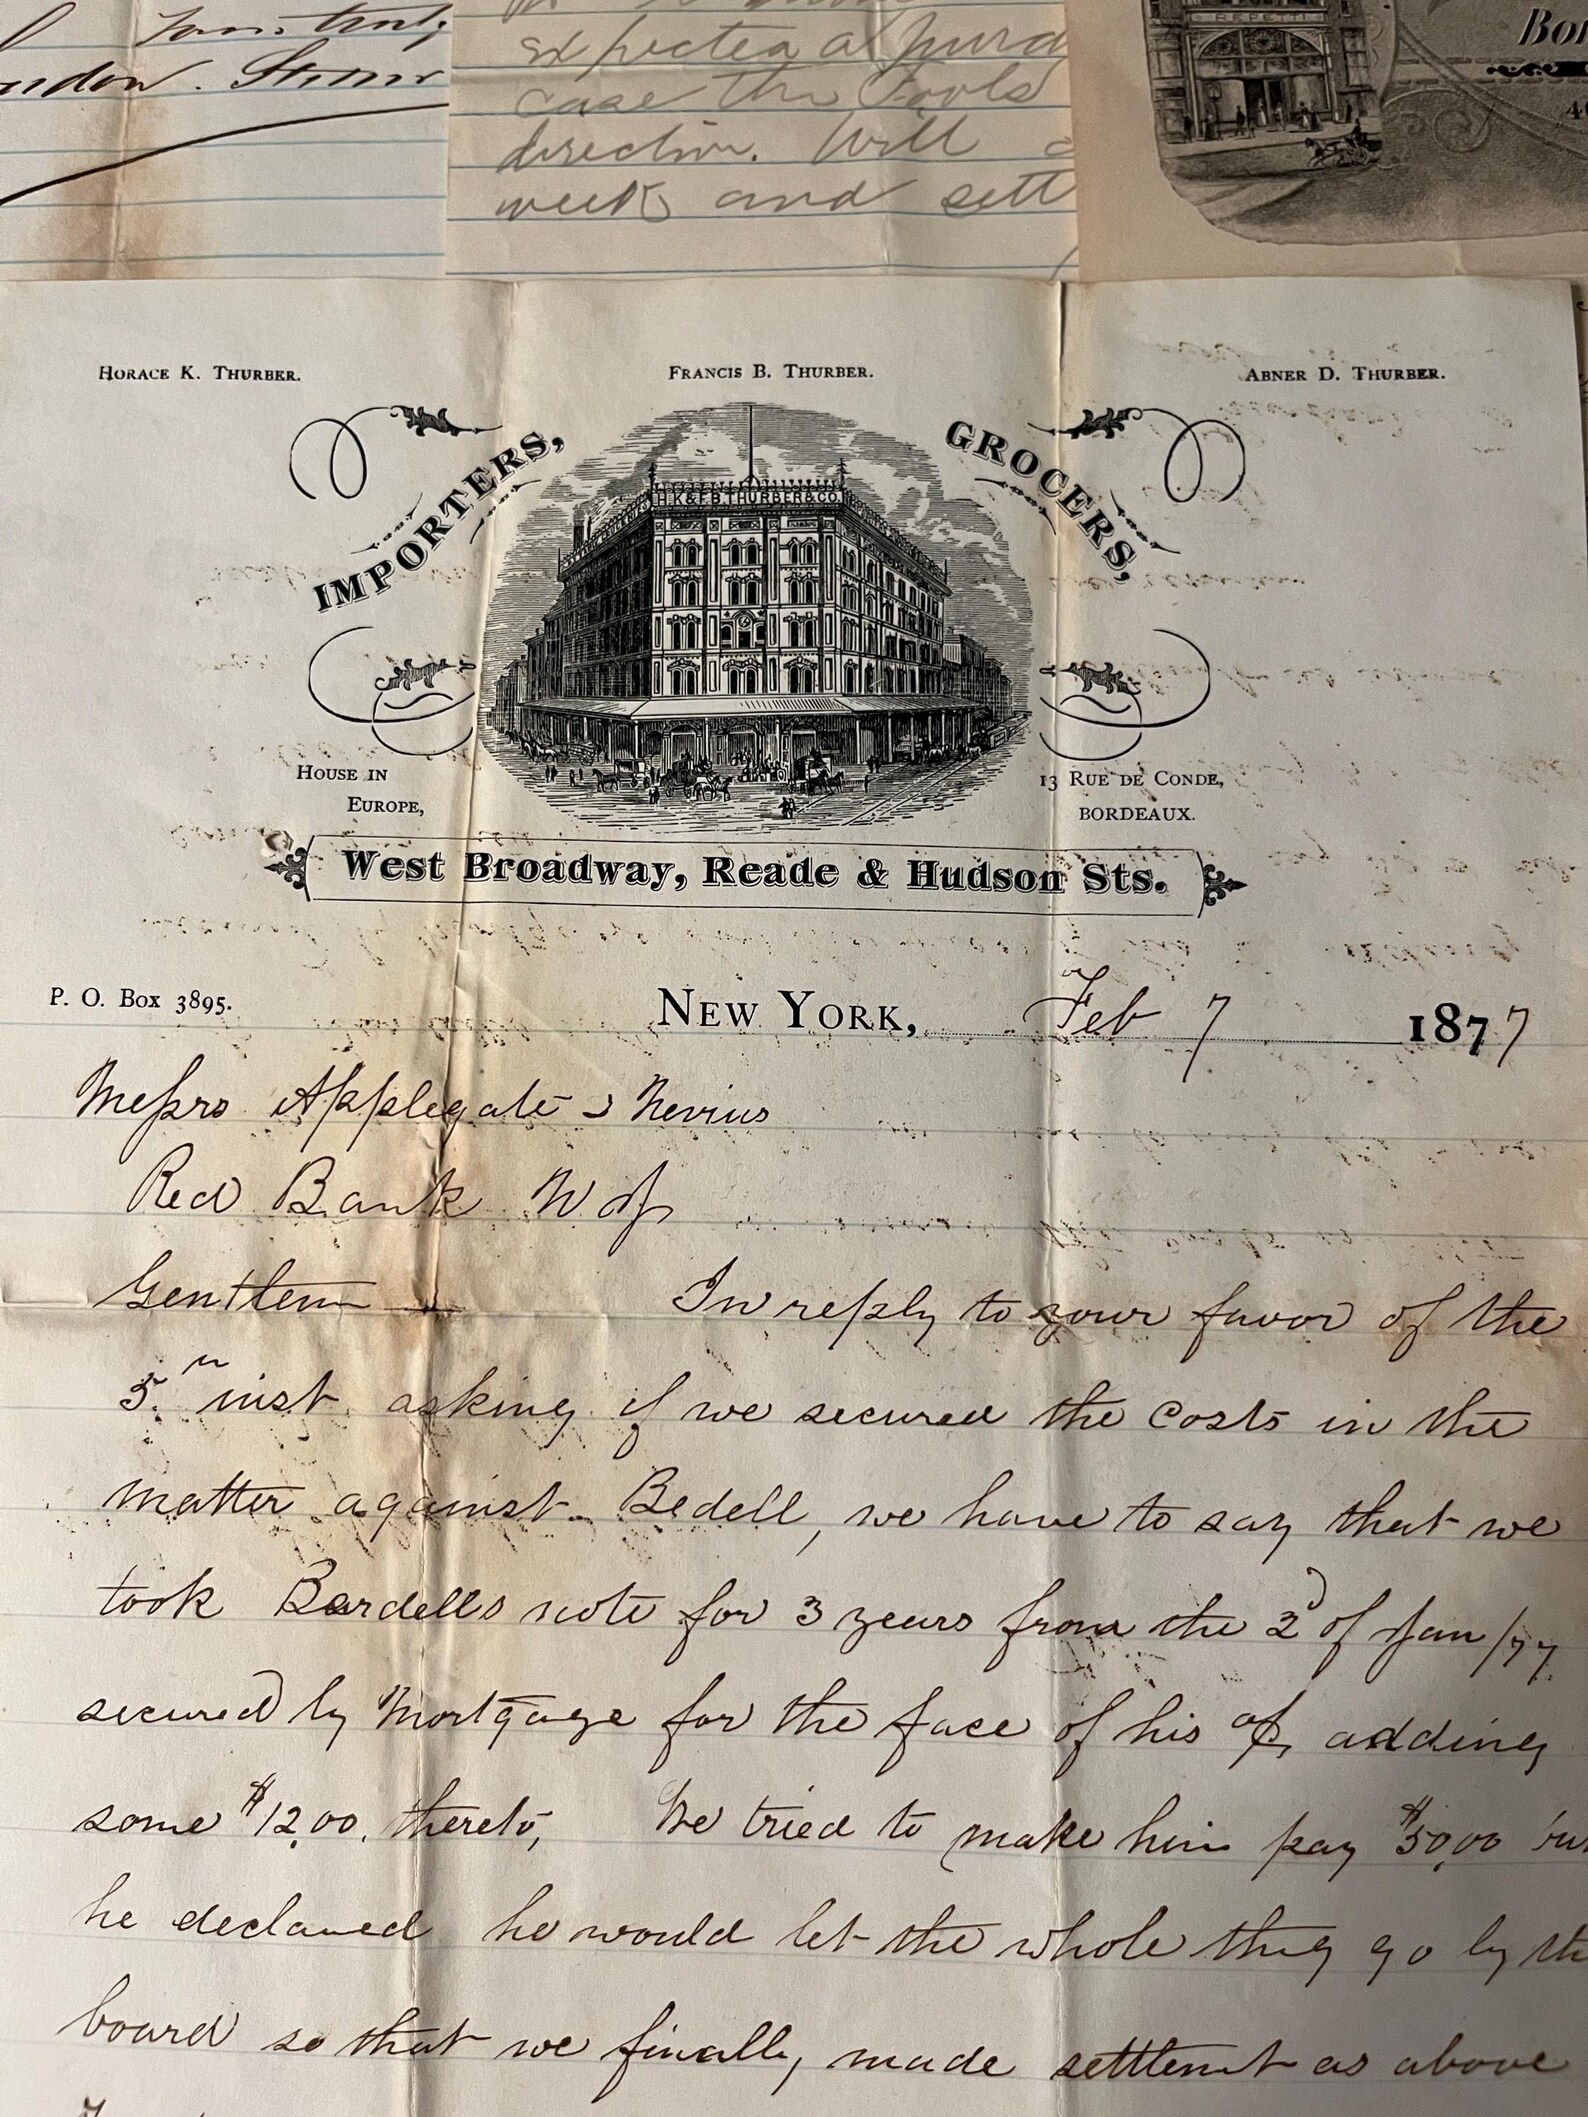 expected a
case the Tools
direction. Will
week and sett
HORACE K. THURBER.
FRANCIS B. THURBER.
ABNER D. THURBER.
IMPORTERS,
GROCERS,
H.K.&F.B.THURBER&CO.
HOUSE IN
EUROPE,
13 RUE DE CONDE,
BORDEAUX.
West Broadway, Reade & Hudson Sts.
P. O. Box 3895.
NEW YORK, Feb 7 1877
Messrs Applegate & Nevius
Red Bank N J
Gentlem
In reply to your favor of the
5" inst asking if we secured the costs in the
matter against Bedell, we have to say that we
took Bardells note for 3 years from the 2d of Jan /77
secured by Mortgage for the face of his a/c, adding
some $12,00. thereto, We tried to make him pay $50,00
he declared he would let the whole thing go by th
board so that we finally made settlemt as above